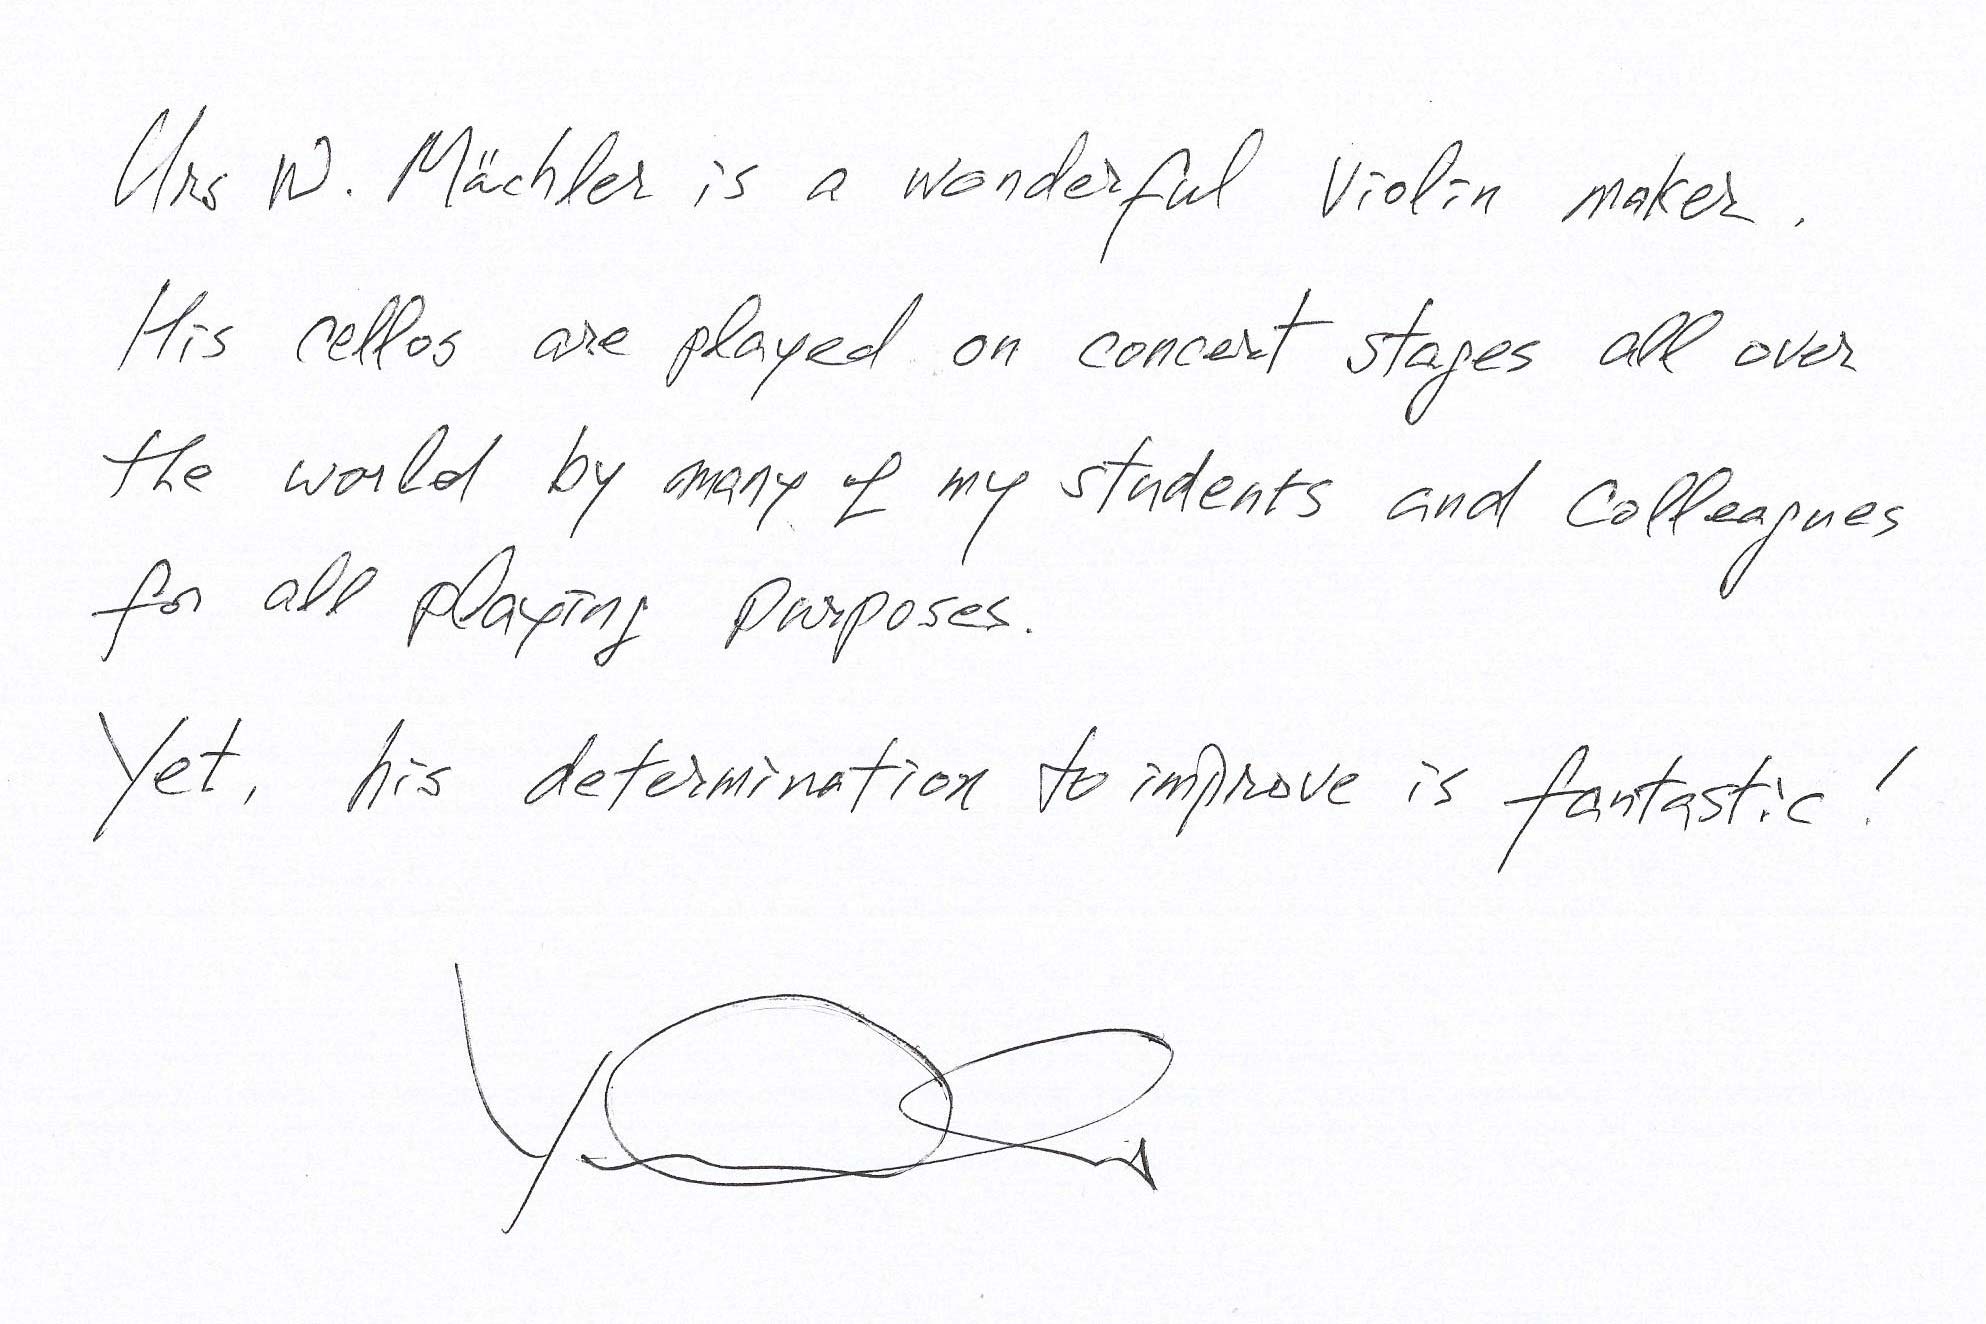 Urs W. Mächler is a wonderful violin maker.
His cellos are played on concert stages all over
the world by many of my students and colleagues
for all playing purposes.
Yet, his determination to improve is fantastic!